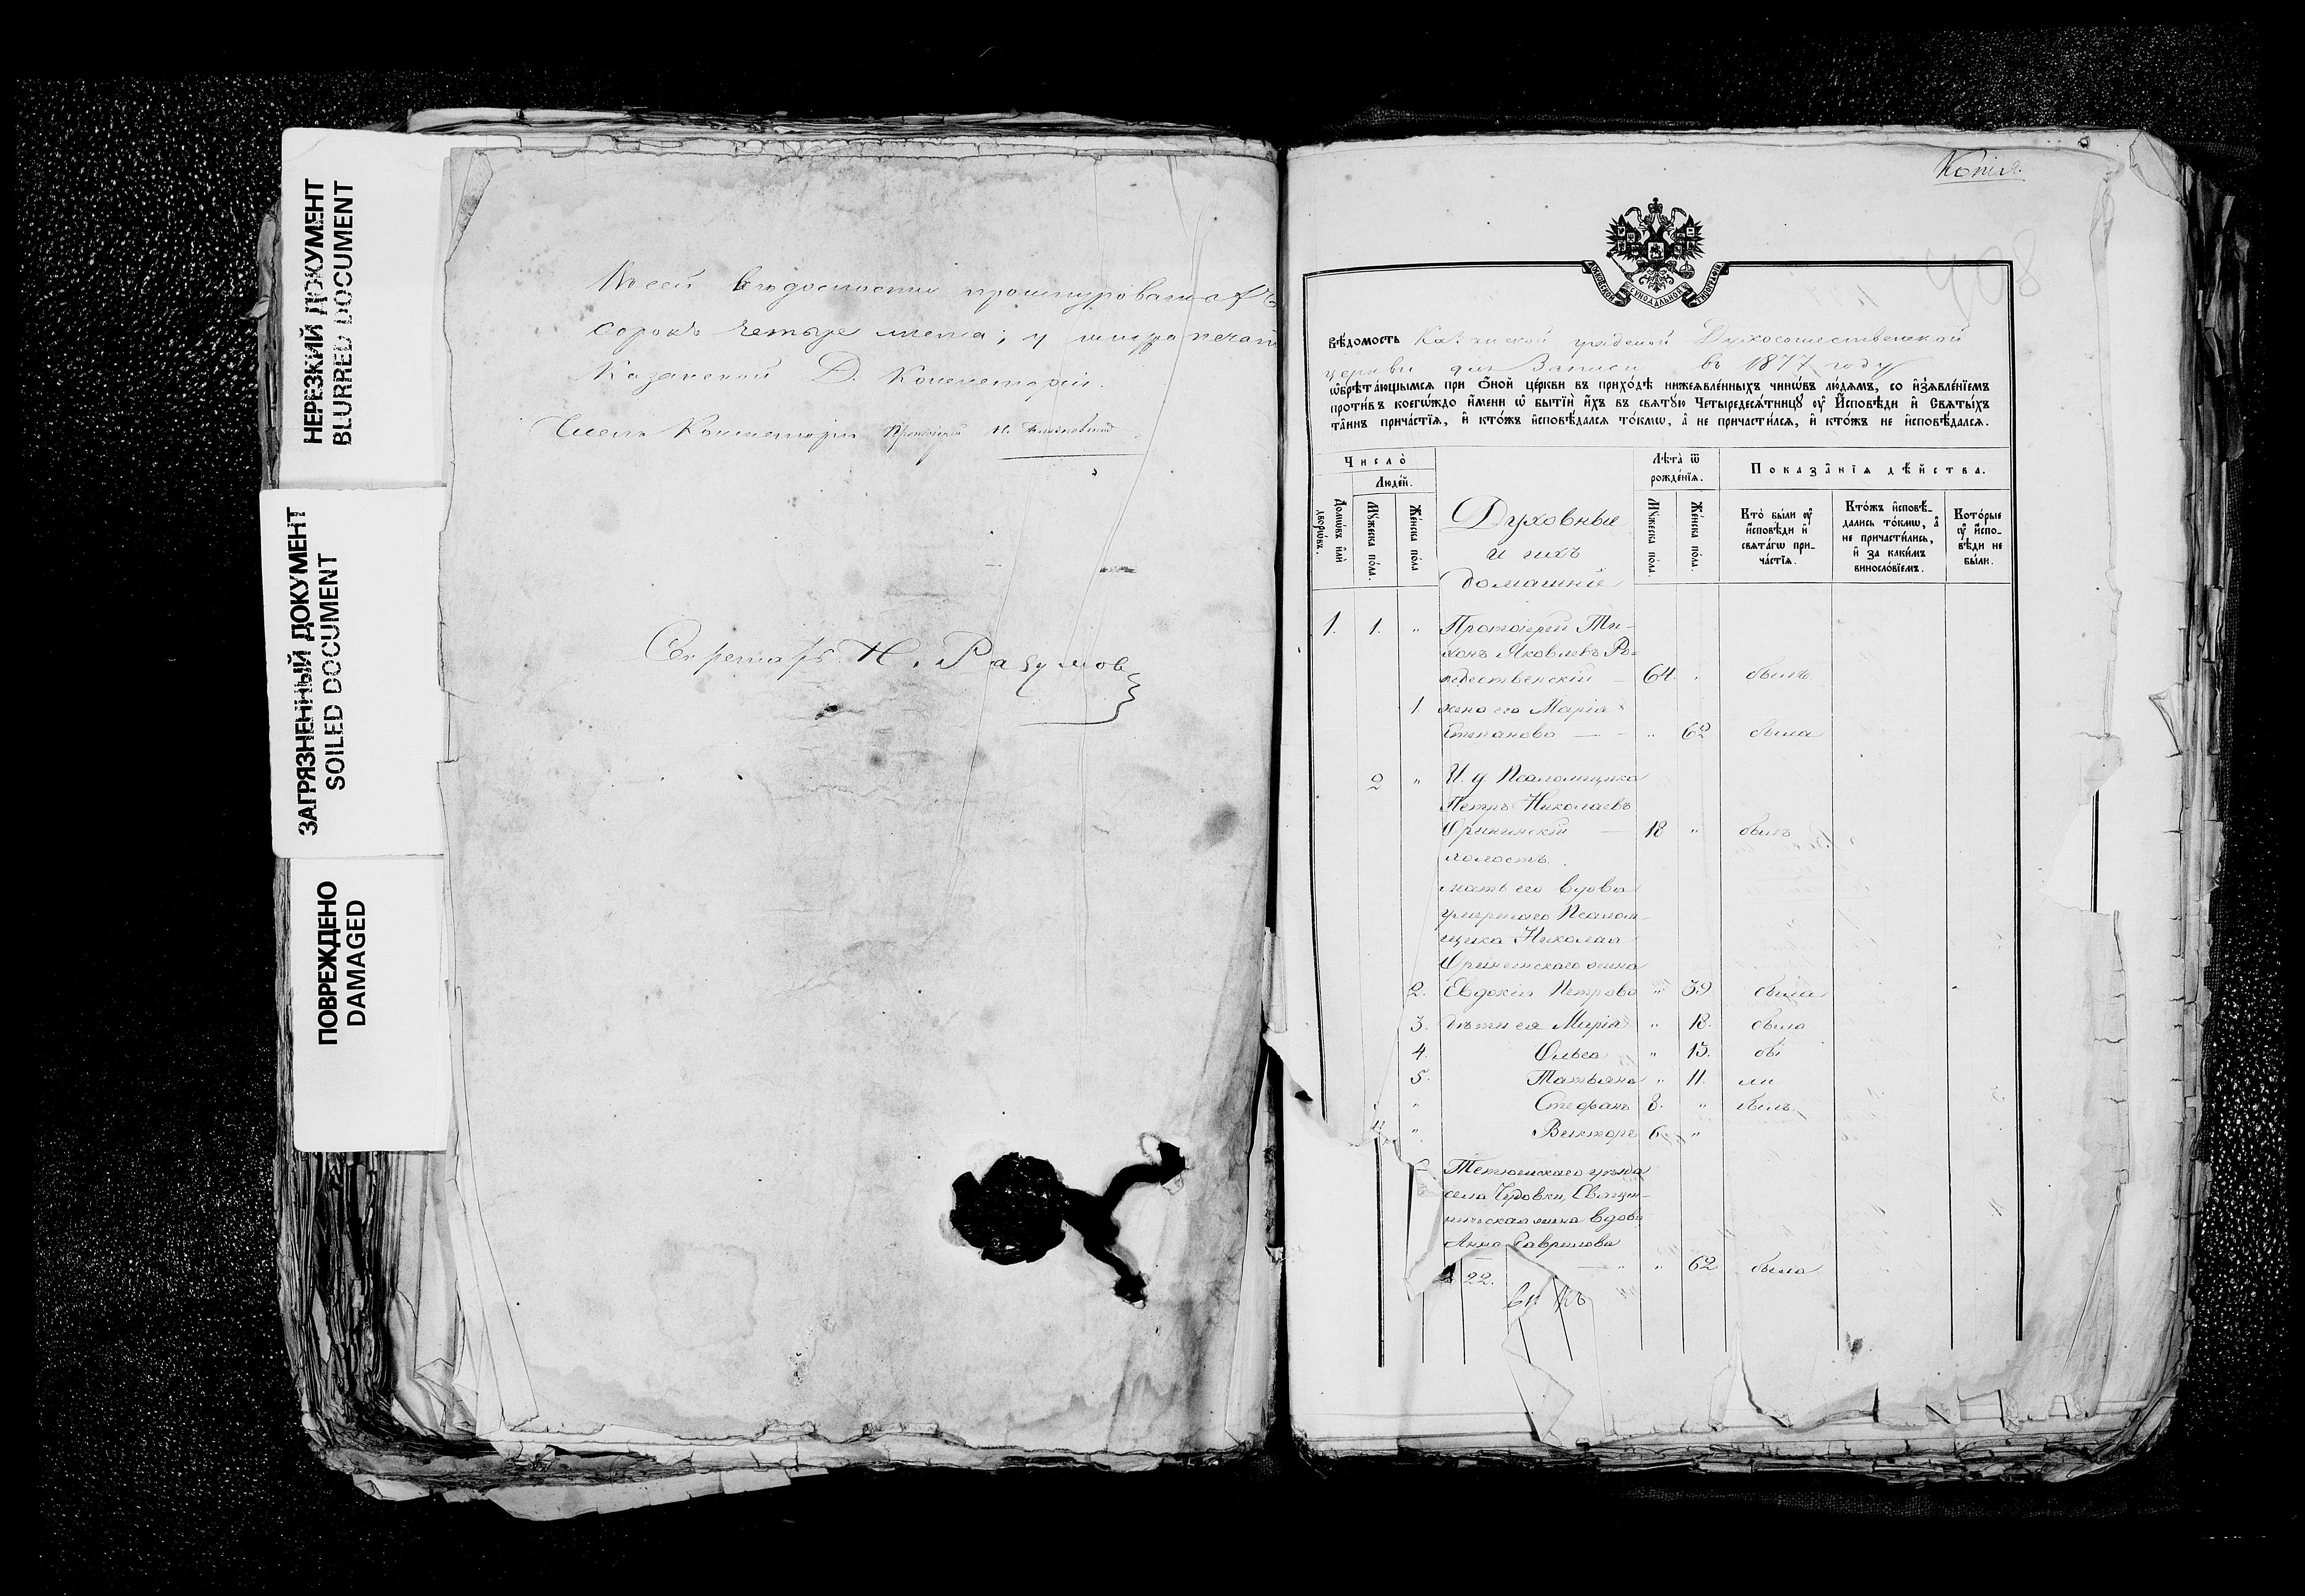 НЕРЕЗКИЙ ДОКУМЕНТ
BLURRED DOCUMENT
ЗАГРЯЗНЕННЫЙ ДОКУМЕНТ
SOILED DOCUMENT
ПОВРЕЖДЕНО
DAMAGED
сорокъ четыре листа; у шнура печат
Казанской Д. Консисторіи.
Членъ Консисторіи Протоіерей
Секретарь Н. Разумов
Копія.
408
МОСКОВСКОЙ СѴНОДАЛЬНОЙ ТИПОГРАФІИ
Вѣ́домость Казанской градской Духосошественской
церкви для Записи въ 1877 году
ѡ҆брѣта́ющымсѧ при Ѻ҆́ной це́ркви въ прихо́дѣ нижеѧвле́нныхъ чинѡ́въ лю́дѧмъ, со и҆з̾ѧвле́нїемъ
проти́въ коегѡ́ждо и҆́мени ѡ҆ бытїѝ и҆́хъ въ свѧту́ю Четыредесѧ́тницꙋ ᲂу҆ И҆сповѣ́ди и҆ Свѧты́хъ
та́инъ прича́стїѧ, и҆ кто́жъ и҆сповѣ́далсѧ то́кмѡ, а҆ не причасти́лсѧ, и҆ кто́жъ не и҆сповѣ́далсѧ.
Число̀
Люде́й.
Домѡ́въ и҆лѝ дворѡ́въ.
Мꙋ́жеска по́ла.
Же́нска по́ла
Духовные
и ихъ
домашніе
Лѣ́та ѿ рожде́нїѧ.
Мꙋ́жеска по́ла.
Же́нска по́ла.
Показа̑нїѧ дѣ́йства.
Кто̀ бы́ли ᲂу҆ и҆сповѣ́ди и҆ свѧта́гѡ прича́стїѧ.
Кто́жъ и҆сповѣ́дались то́кмѡ, а҆ не причасти́лись, и҆ за каки́мъ виносло́вїемъ.
Кото́рые ᲂу҆ и҆сповѣ́ди не бы́ли.
1. 1. " Протоіерей Ти-
хонъ Яковлевъ Ро-
ждественскій — 64. " былъ
1 жена его Марія
Степанова — " 62 была
2 " И. д. Псаломщика
Петръ Николаевъ
18 " былъ
холостъ.
мать его вдова
умершаго Псалом-
щика Николая
жена
2. Евдокія Петрова " 39 была
3. дѣти ея Марія " 18. была
4. Ольга " 15. бы
5. Татьяна " 11. ли
" Стефанъ 8. " былъ
" Викторъ 6 "
Тетюшскаго уѣзда
села Священ-
ническая жена вдова
Анна Гаврилова
" 62 была
22.